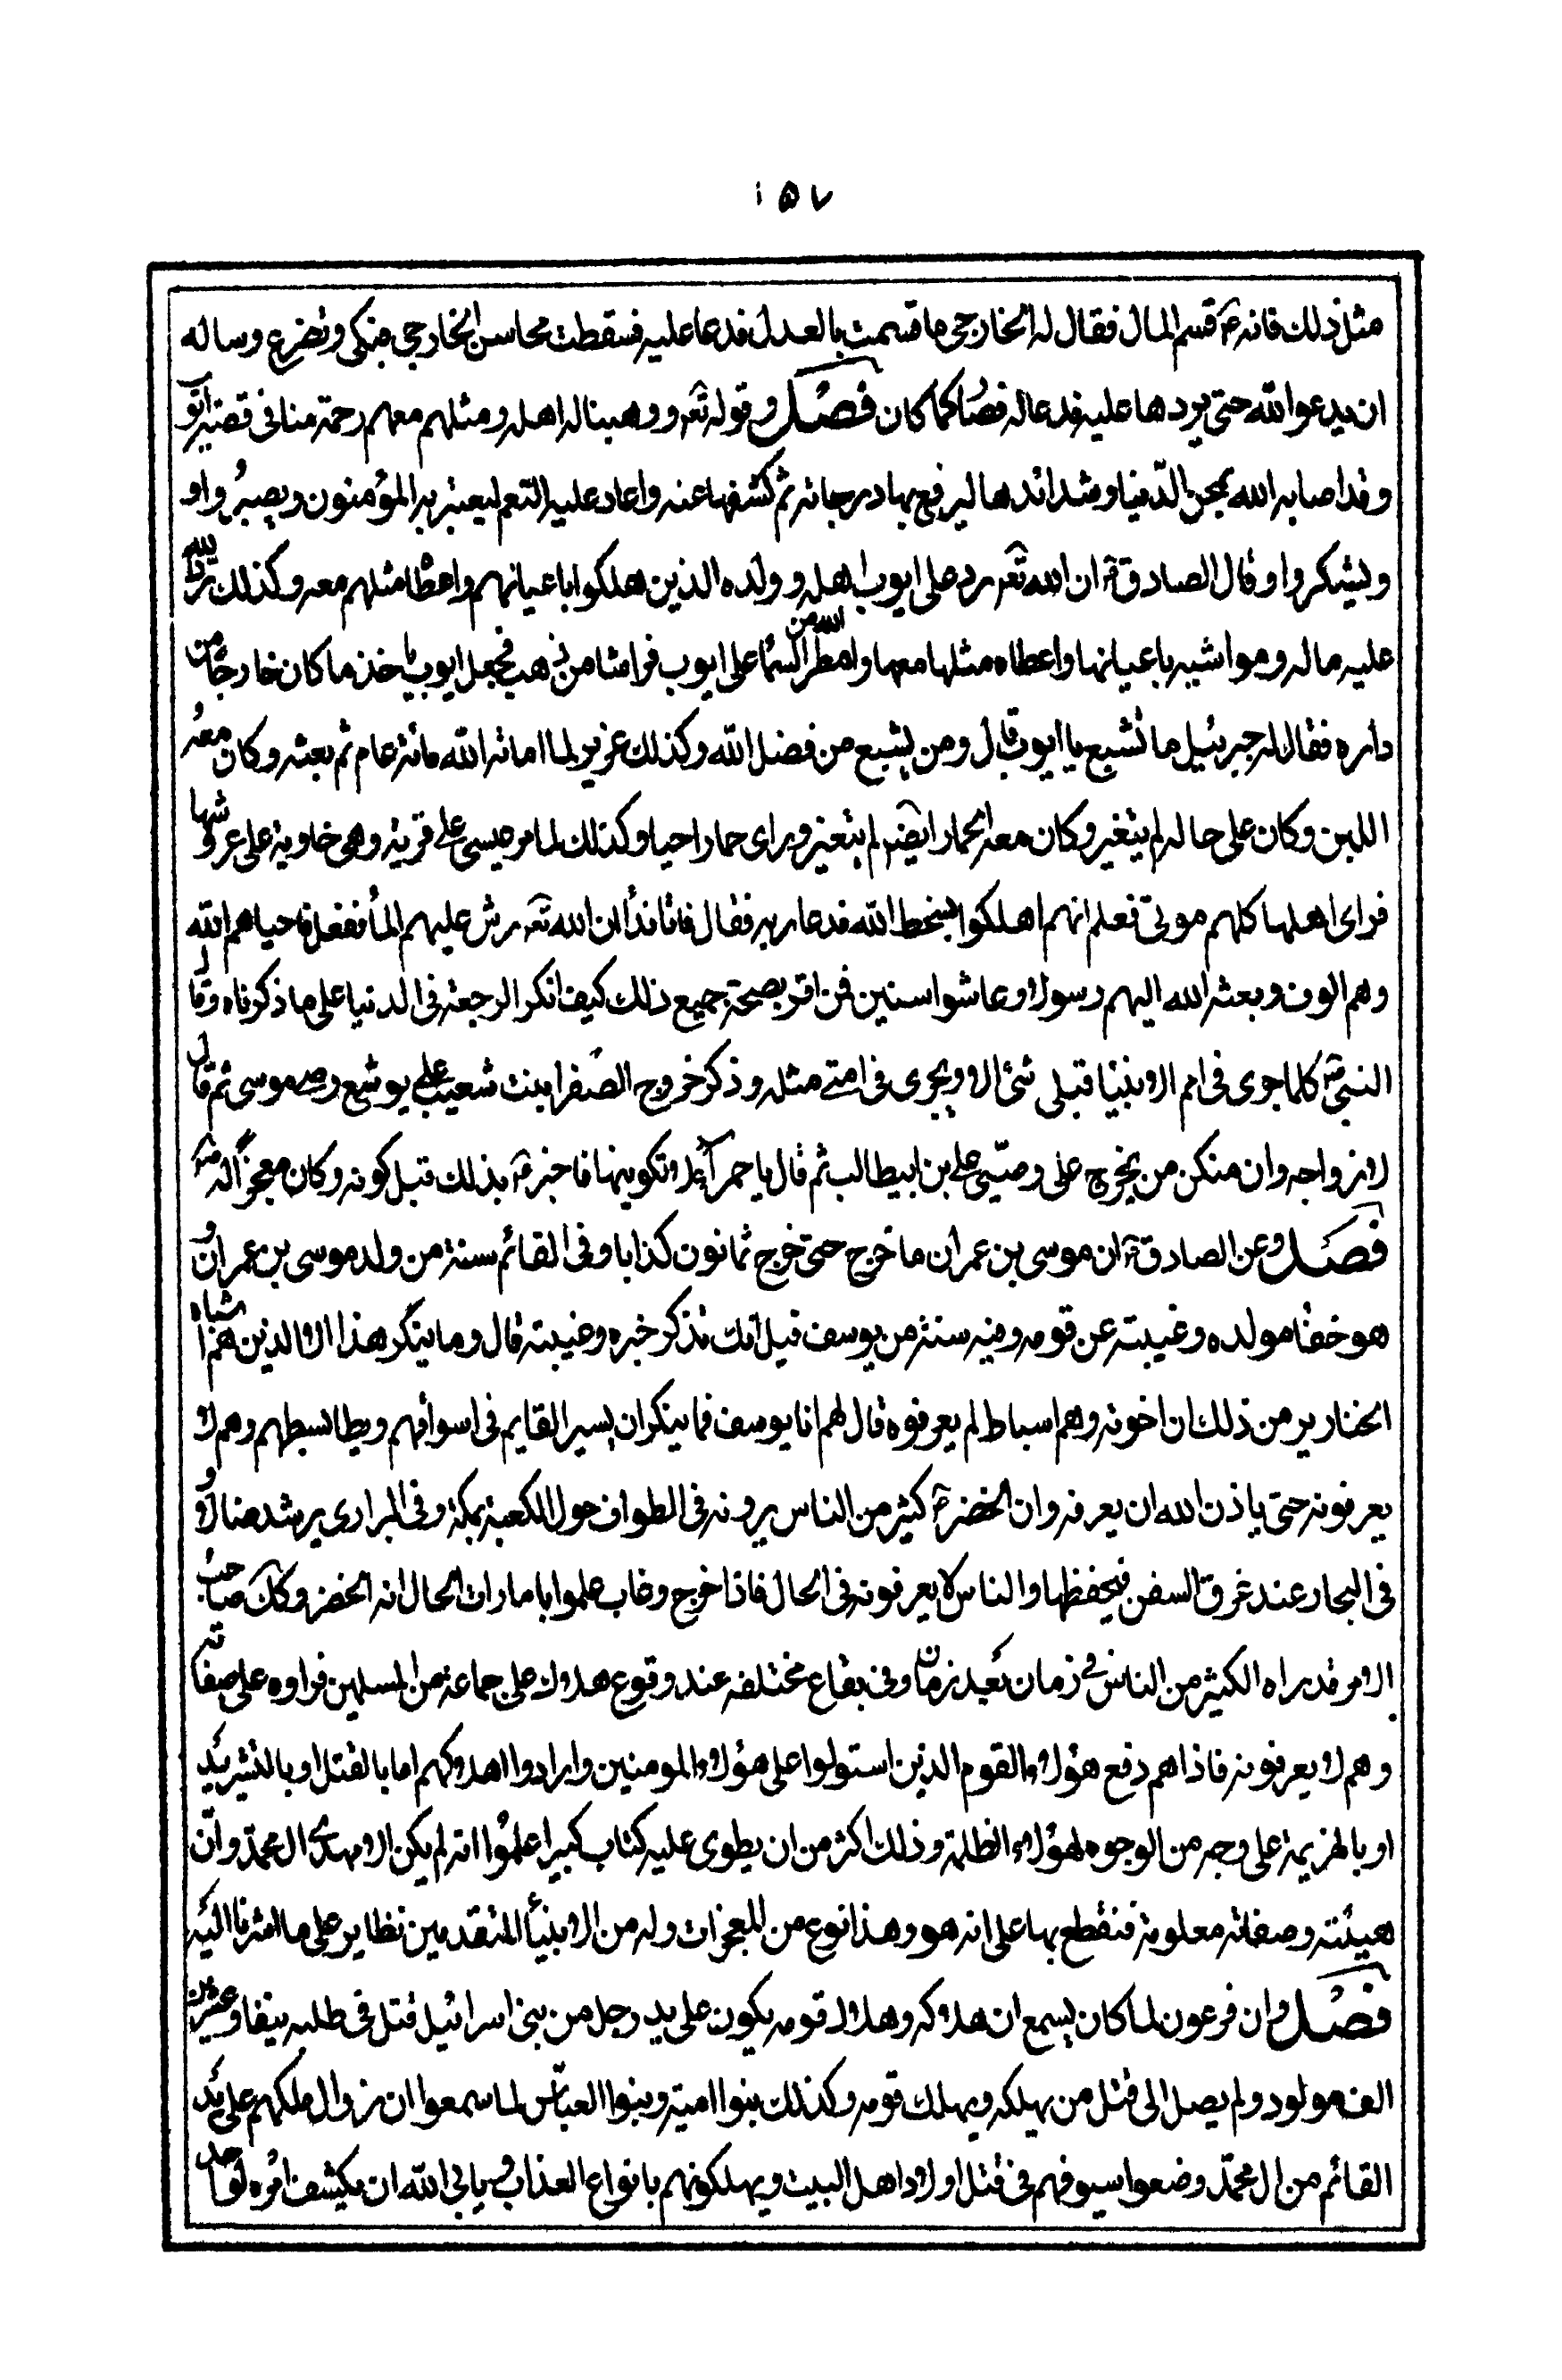 ١٥٧
مثل ذلك فانه ع قسم المال فقال له الخارجى ما قسمت بالعدل فدعا عليه فسقطت محاسن الخارجى فبكى وتضرع وساله
ان يدعو الله حتى يردها عليه فدعا له فصا كما كان فصل وقوله تع ووهبنا له اهله ومثلهم معهم رحمة منا فى قصة ايو
وقد اصابه الله بمحن الدنيا وشدائدها ليرفع بها درجاته ثم كشفها عنه واعاد عليه النعم ليعتبر به المؤمنون ويصبروا و
وليشكروا وقال الصادق ع ان الله تع رد على ايوب اهله وولده الذين هلكوا باعيانهم واعطا مثلهم معه وكذلك رد الله
عليه ماله ومواشيه باعيانها واعطاه مثلها معها وامطر الله من السما على ايوب فراشا من ذهب فجعل ايوب ياخذ ما كان خارجا من
داره فقال له جبرئيل ما تشبع يا ايوب قال ومن يشبع من فضل الله وكذلك عزير لما اماته الله مائة عام ثم بعثه وكان معه
اللبن وكان على حاله لم يتغير وكان معه الحمار ايضا لم يتغير وراى حمارا حيا وكذلك لما مر عيسى على قرية وهى خاوية على عروشها
فراى اهلها كلهم موتى فعلم انهم اهلكوا بسخط الله فدعا ربه فقال فانا ندا ان الله تع رش عليهم الما ففعل فاحياهم الله
وهم الوف وبعثه الله اليهم رسولا وعاشوا سنين فمن اقر بصحة جميع ذلك كيف انكر الرجعة فى الدنيا على ما ذكرناه وقال
النبى ص كلما جرى فى امم الانبيا قبلى شئ الا ويجرى فى امتى مثله وذكر خروج الصفرا بنت شعيب على يوشع وصى موسى ثم قال
لازواجه وان منكن من يخرج على وصيى على بن ابيطالب ثم قال يا حمرا لا تكونينها فاخبر ص بذلك قبل كونه وكان معجزا له ص
فصل وعن الصادق ع ان موسى بن عمران ما خرج حتى خرج ثمانون كذابا وفى القائم سنة من ولد موسى بن عمران و
هو خفا مولده وغيبته عن قومه وفيه سنة من يوسف قيل انك تذكر خبره وغيبته قال وما ينكر هذا الا الذين هم اشباه
الخنازير من ذلك ان اخوته وهم اسباط لم يعرفوه قال لهم انا يوسف فما ينكر ان يسير القايم فى اسواقهم ويطا بسطهم وهم لا
يعرفونه حتى ياذن الله ان يعرفه وان الخضر ع كثير من الناس يرونه فى الطواف حول الكعبة بمكة وفى البرارى يرشد ضالا و
فى البحار عند غرق السفن فيحفظها والناس لا يعرفونه فى الحال فاذا خرج وغاب علموا بامارات الحال انه الخضر وكك صاحب
الامر قد راه الكثير من الناس فى زمان بعيد زمان وفى بقاع مختلفه عند وقوع هلاك على جماعة من المسلمين فراوه على صفاته
وهم لا يعرفونه فاذا هم دفع هؤلاء القوم الذين استولوا على هؤلاء المومنين وارادوا اهلاكهم اما بالقتل او بالتشريد
او بالهزيمة على وجه من الوجوه لهؤلاء الظلمة وذلك اكثر من ان يطوى عليه كتاب كبير اعلموا انه لم يكن الا مهدى ال محمد وان
هيئته وصفاته معلومة فنقطع بها على انه هو وهذا نوع من المعجزات وله من الانبيأ المتقدمين نظاير على ما اشرنا اليه
فصل وان فرعون لما كان يسمع ان هلاكه وهلاك قومه يكون على يد رجل من بنى اسرائيل قتل فى طلبه نيفا وعشرين
الف مولود ولم يصل الى قتل من يهلكه ويهلك قومه وكذلك بنوا امية وبنوا العباس لما سمعوا ان زوال ملكهم على يد
القائم من ال محمد وضعوا سيوفهم فى قتل اولاد اهل البيت ويهلكونهم بانواع العذاب ويابى الله ان يكشف امره لواحد